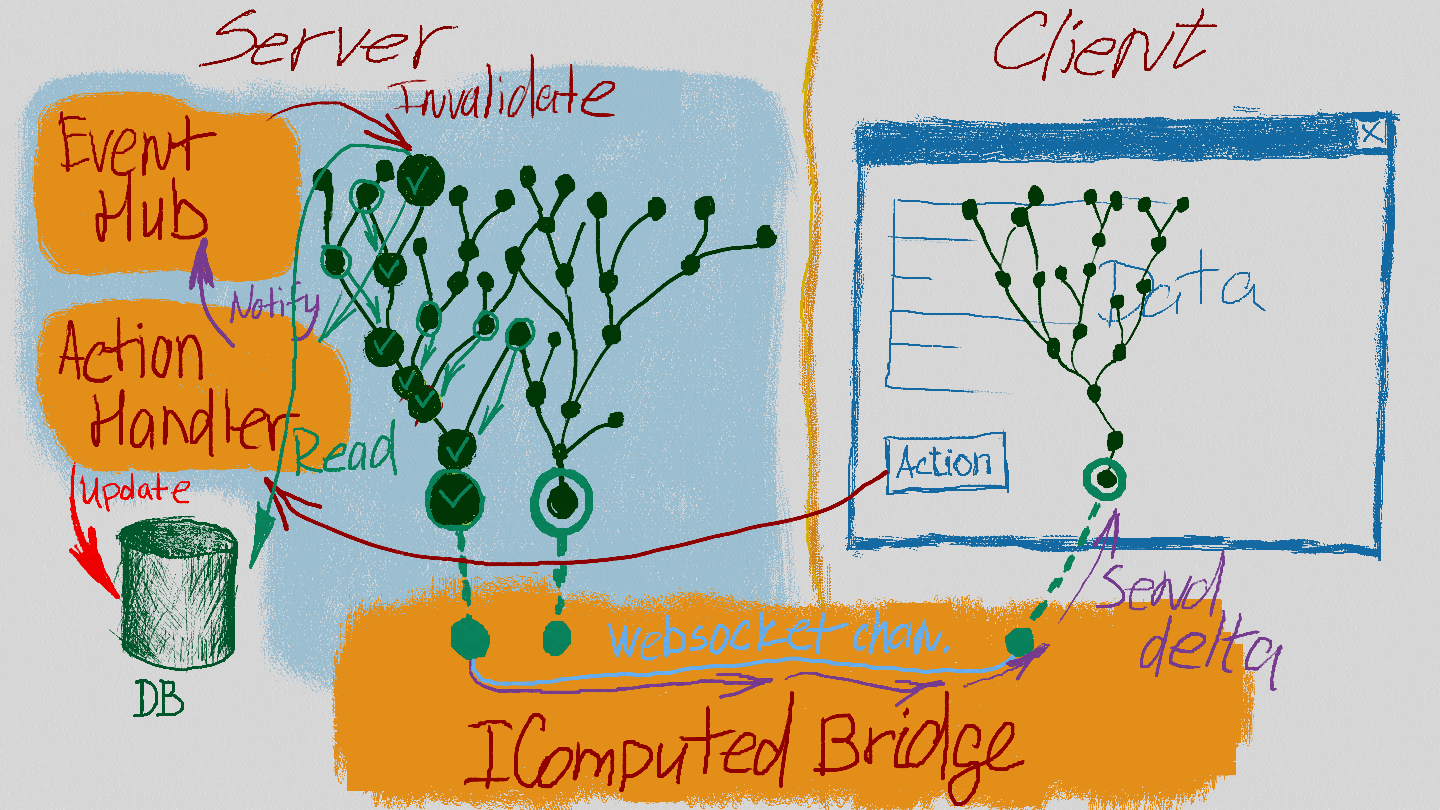 Server
Client
Invalidate
Event
Hub
Notify
Action
Handler
Read
Update
DB
Data
Action
Send
delta
Websocket chan.
IComputed Bridge
X